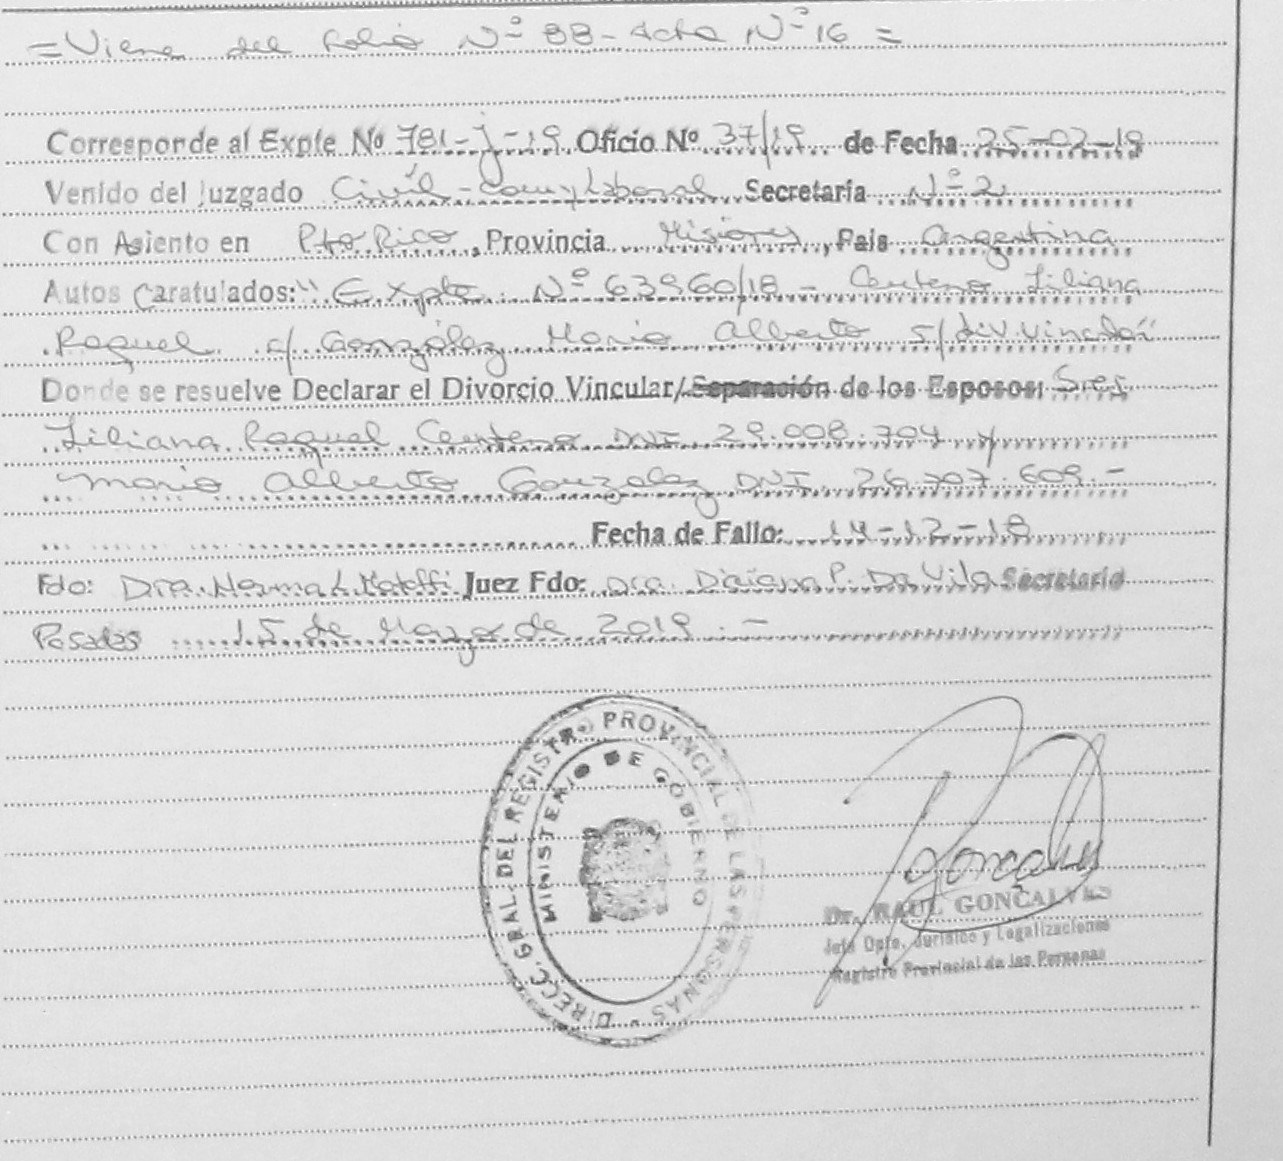 = Viene del folio Nº 88 - Acta Nº 16 =
Corresponde al Expte Nº 781-J-19 Oficio Nº 37/19 de Fecha 25-02-19
Venido del Juzgado Civil - Com y Laboral Secretaría Nº 2
Con Asiento en Pto Rico, Provincia Misiones, País Argentina
Autos Caratulados: "Expte Nº 63960/18 - Centeno Liliana
Raquel c/ González Mario Alberto s/ div. vincular"
Donde se resuelve Declarar el Divorcio Vincular/Separación de los Esposos: Sres
Liliana Raquel Centeno DNI 29.008.704 y
Mario Alberto Gonzalez DNI 26.707.609.-
Fecha de Fallo: 14-12-18
Fdo: Dra. Norma L. Juez Fdo: Dra. P. Da Vila Secretario
Posadas 15 de Marzo de 2019.-
DIRECC. GRAL. DEL REGISTRO PROVINCIAL DE LAS PERSONAS -
MINISTERIO DE GOBIERNO
Goncalves
Dr. RAUL GONCALVES
Jefe Dpto. Jurídico y Legalizaciones
Registro Provincial de las Personas